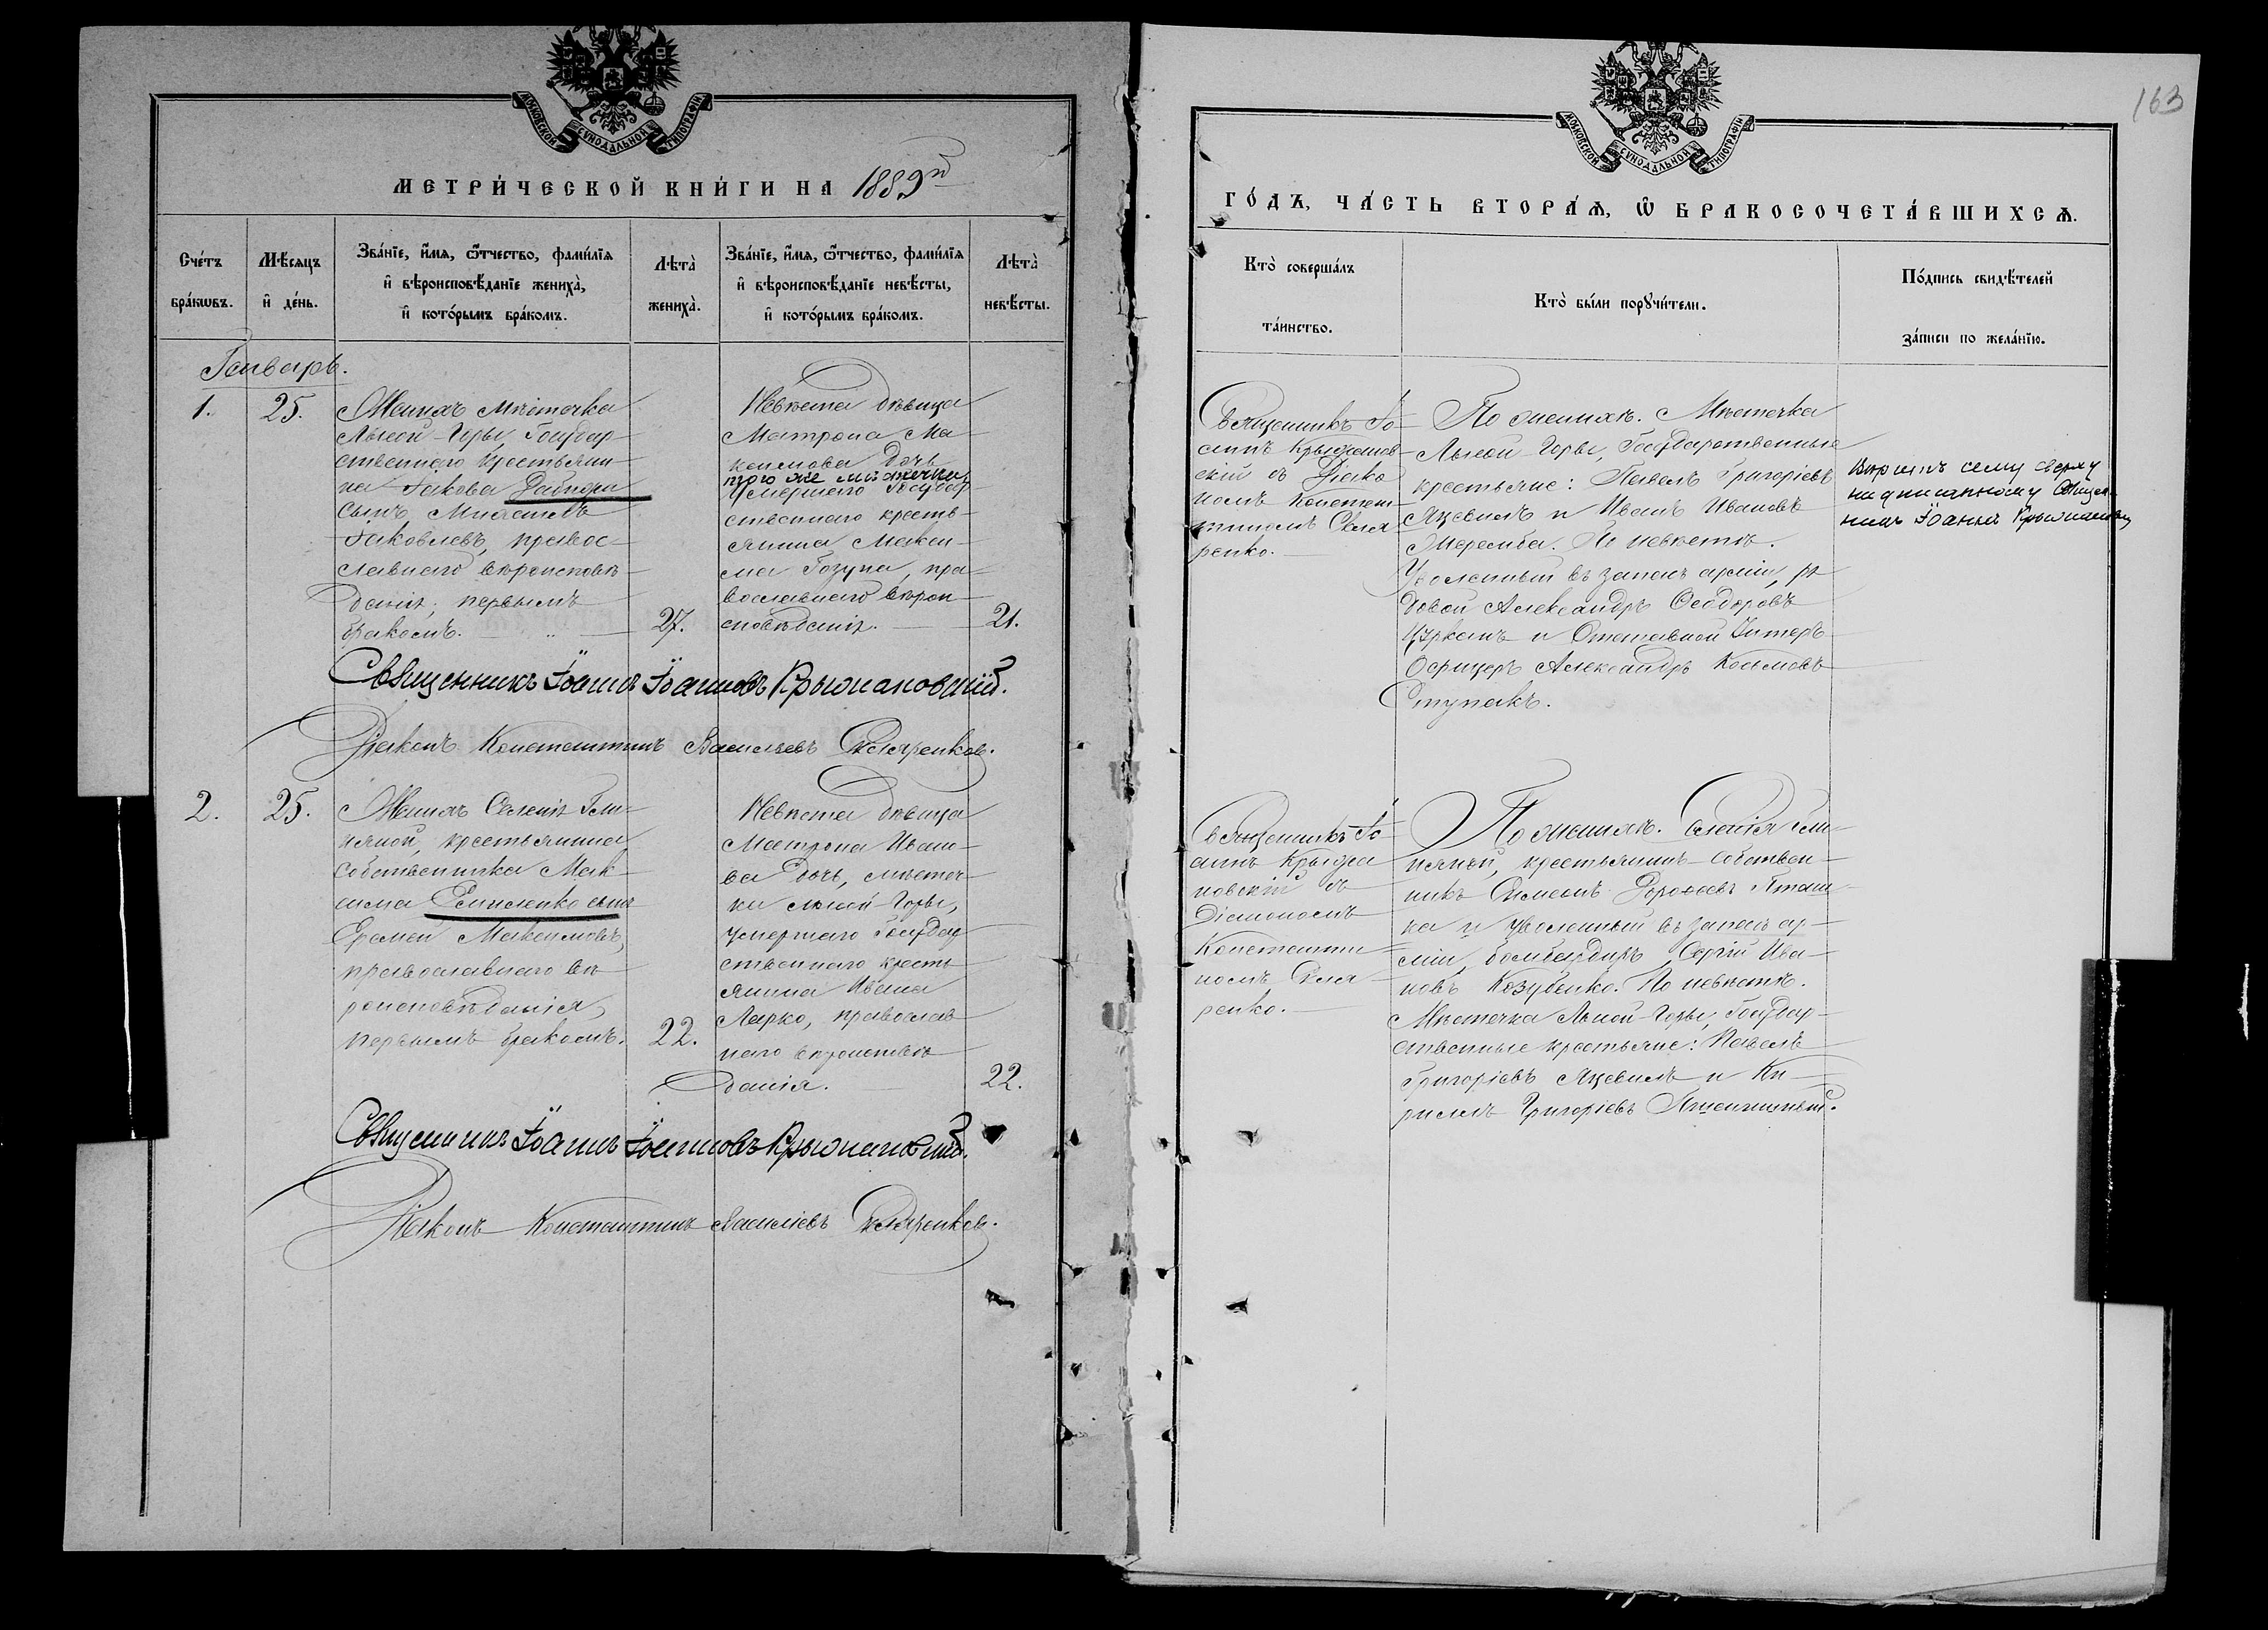 163
МОСКОВСКОЙ СѴНОДАЛЬНОЙ ТИПОГРАФІИ
МЕТРИ́ЧЕСКОЙ КНИ́ГИ НА 1889й
Сче́тъ бра́кѡвъ.
Мѣ́сяцъ и҆ де́нь.
Зва́нїе, и҆́мѧ, ѻ҆́тчество, фами́лїѧ
и҆ вѣроисповѣ́данїе жениха̀,
и҆ кото́рымъ бра́комъ.
Лѣта̀ жениха̀.
Зва́нїе, и҆́мѧ, ѻ҆́тчество, фами́лїѧ
и҆ вѣроисповѣ́данїе невѣ́сты,
и҆ кото́рымъ бра́комъ.
Лѣта̀ невѣ́сты.
Генварь.
1.
25.
Женихъ мѣстечка
Лысой-Горы, Государ-
ственнаго крестьяни-
на Іакова
сынъ Михаилъ
Іаковлевъ, правос-
лавнаго вѣроисповѣ-
данія, первымъ
бракомъ.
27.
Невѣста дѣвица
Матрона Ма-
ксимова дочь
того же мѣстечка
умершаго Государ-
ственнаго кресть-
янина Макси-
ма Гогуна, пра-
вославнаго вѣрои-
сповѣданія.
21.
Священникъ Іоаннъ Іоанновъ Крыжановскій.
Діаконъ Константинъ Васильевъ Скляренковъ.
2.
25.
Женихъ Селенія Гли-
няной, крестьянина
собственника Мак-
сима Емиленко сынъ
Еремей Максимовъ,
православнаго вѣ-
роисповѣданія,
первымъ бракомъ.
22.
Невѣста дѣвица
Матрона Ивано-
ва дочь, мѣстеч-
ка Лысой Горы,
умершаго Государ-
ственнаго кресть-
янина Ивана
Ларко, православ-
наго вѣроисповѣ-
данія.
22.
Священникъ Іоаннъ Іоанновъ Крыжановскій.
Діаконъ Константинъ Василіевъ Скляренковъ.
МОСКОВСКОЙ СѴНОДАЛЬНОЙ ТИПОГРАФІИ
ГО́ДЪ, ЧА́СТЬ ВТОРА́Ѧ, Ѡ҆ БРАКОСОЧЕТА́ВШИХСѦ.
Кто̀ соверша́лъ
та́инство.
Кто̀ бы́ли порꙋчи́тели.
По́дпись свидѣ́телей
за́писи по жела́нїю.
Священникъ Іо-
аннъ Крыжанов-
скій съ Діако-
номъ Констан-
тиномъ Скля-
ренко.
По женихѣ. Мѣстечка
Лысой-Горы, Государственные
крестьяне: Павелъ Григоріевъ
Яцевилъ и Иванъ Ивановъ
Жереиба. По невѣстѣ.
Уволенный въ запасъ арміи, ря-
довой Александръ Ѳеодоровъ
Цуркинъ и Отставной Унтеръ-
Офицеръ Александръ Косьмовъ
Ступакъ.
надписанному Священ-
никъ Іоаннъ Крыжановскій
Священникъ Іо-
аннъ Крыжа-
новскій съ
Діакономъ
Константи-
номъ Скля-
ренко.
По женихѣ. Селенія Гли-
няной, крестьянинъ-собствен-
никъ Симеонъ Дороѳеевъ Пташ-
ка и уволенный въ запасъ ар-
міи, бомбардиръ, Сергій Ива-
новъ Козубенко. По невѣстѣ.
Мѣстечка Лысой-Горы, Государ-
ственные крестьяне: Павелъ
Григоріевъ Яцевилъ и Ки-
риллъ Григоріевъ Пшеничный.